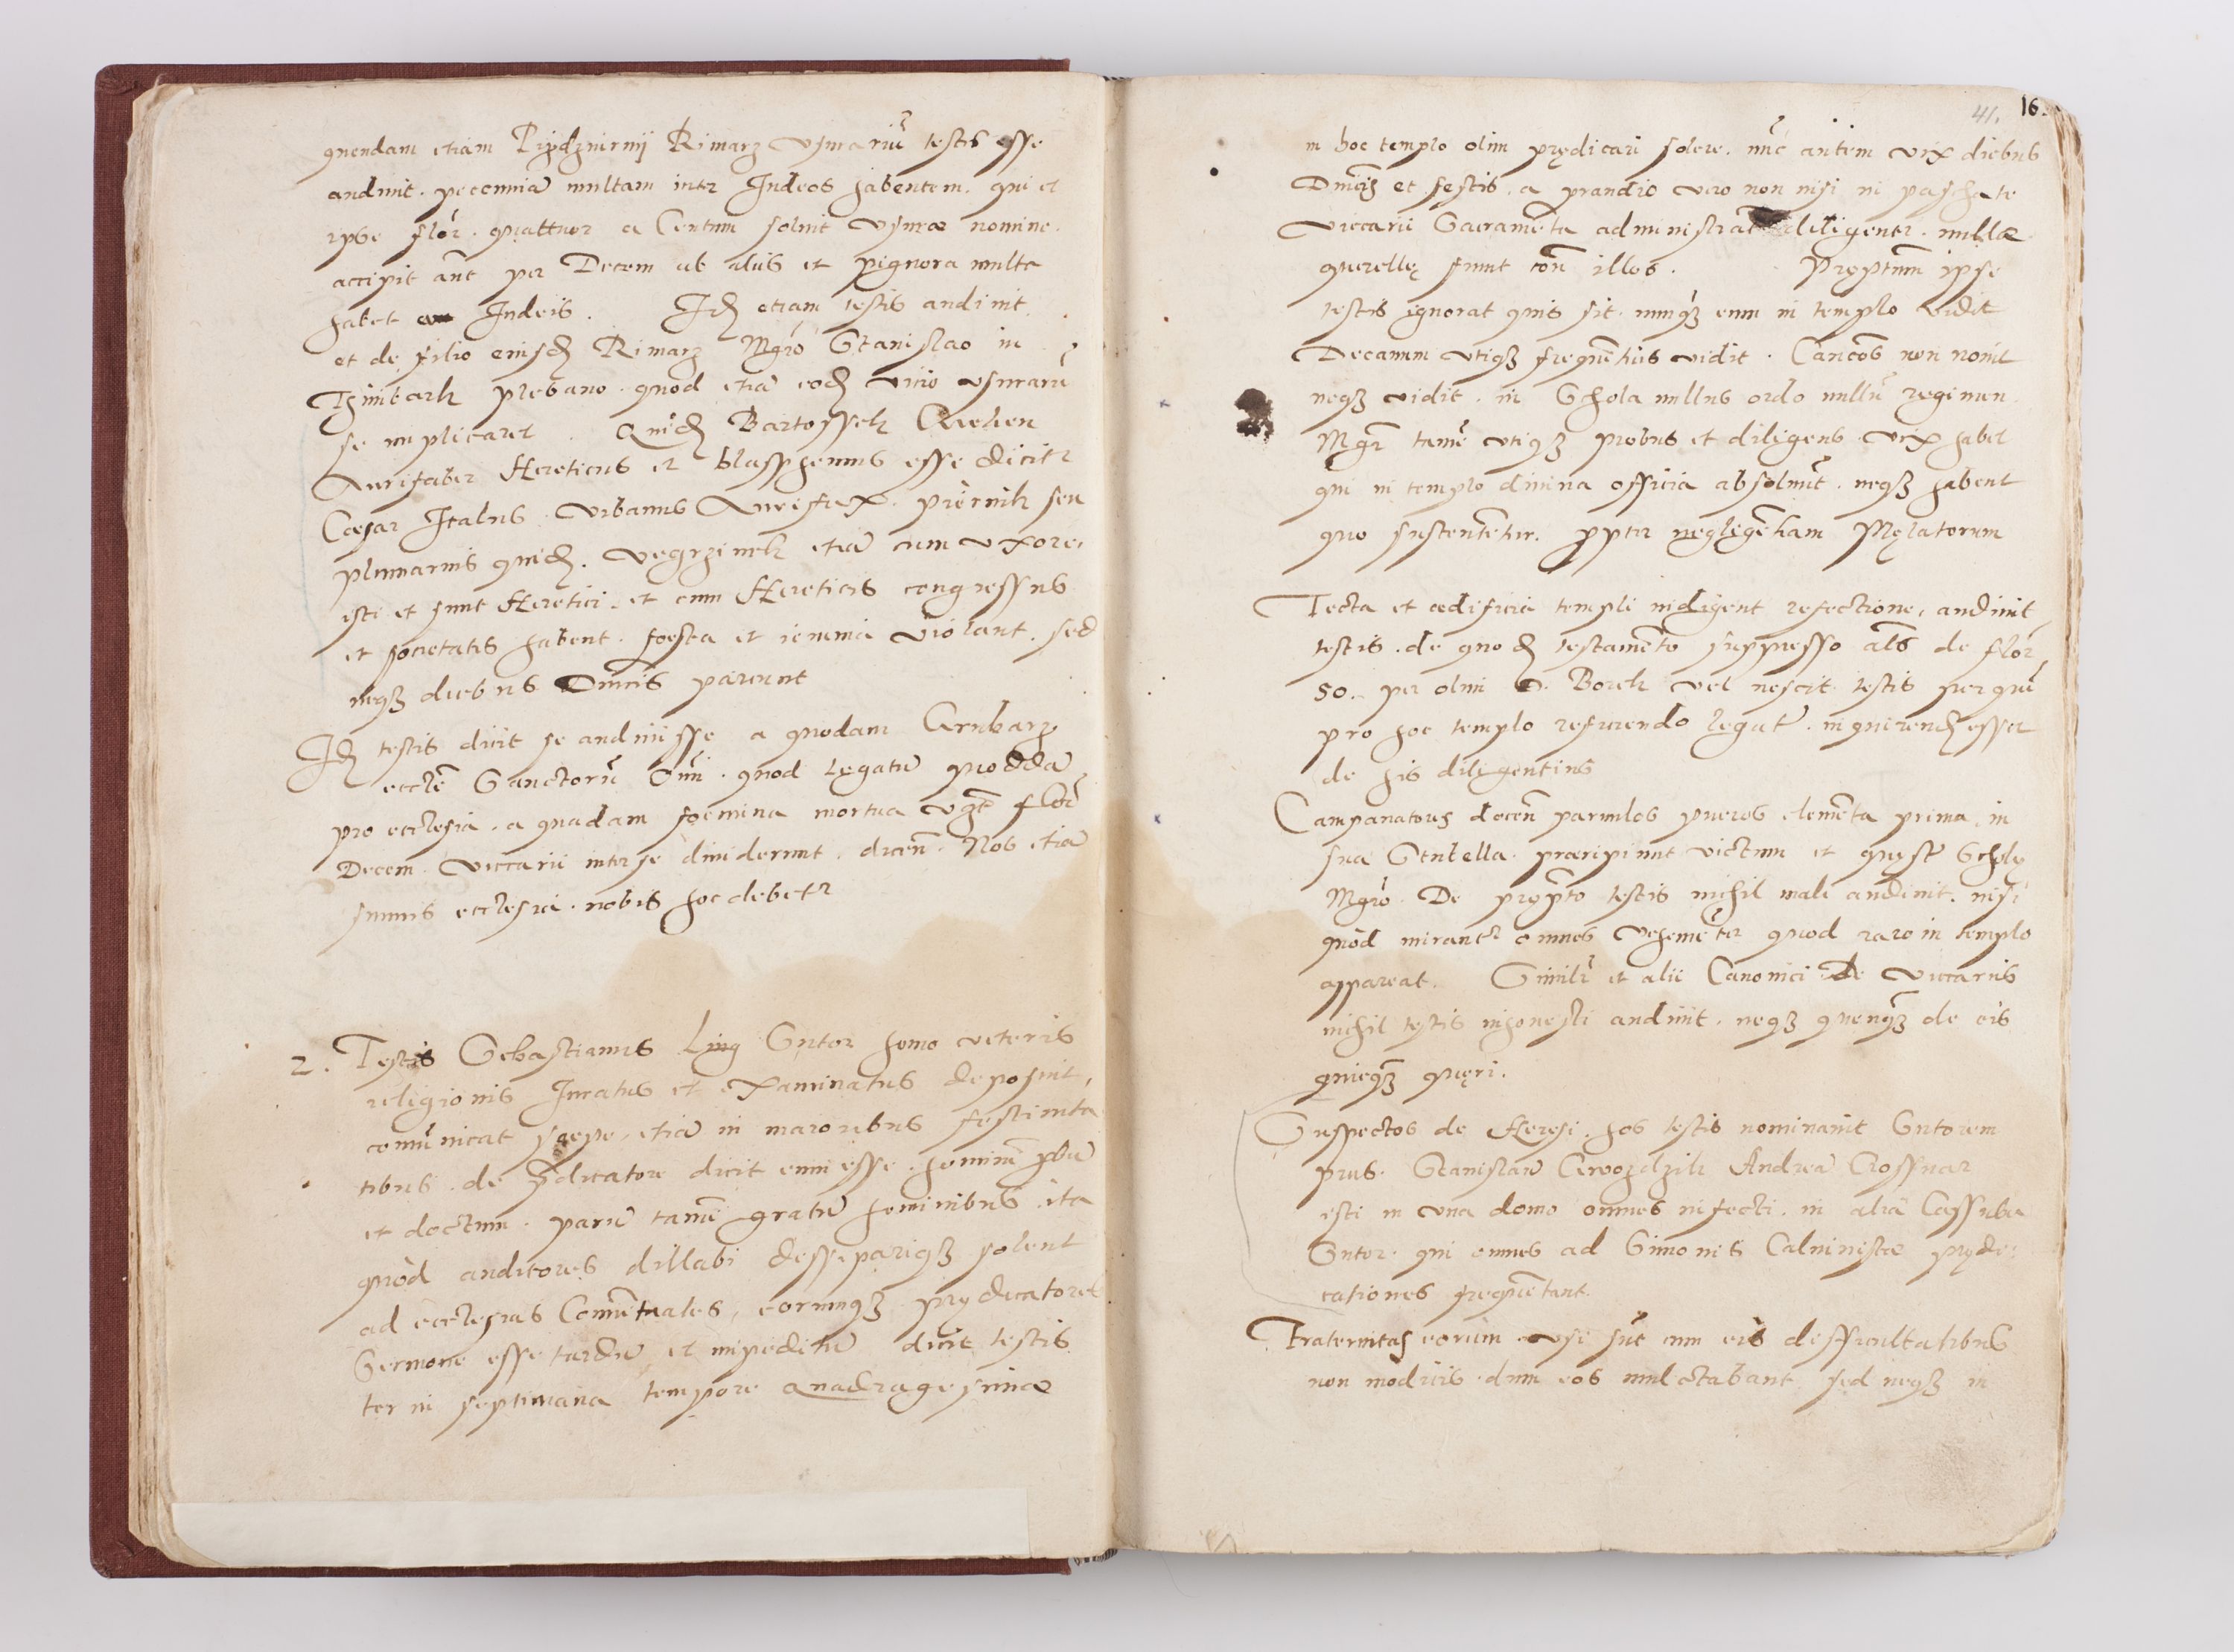 quendam etiam Rimarz usurariũ testis esse
audivit. pecuniã multam inter Iudeos habentem. qui et
ipse flor. quattuor a Centum solvit usuræ nomine.
accipit aut per Decem ab aliis et pignora multa
habet Iudeis. Id etiam testis audivit
et de filio eiusd Rimarz Mgro Stanislao in
plebano. quod etiã eod vitio usurarũ
se implicaret. Quid Bartossek
Aurifaber Hereticus et blasphemus esse dicitr
Cæsar Italus. Urbanus Aurifax. piernik seu
plumarius quid. Vegrzinek etiã cum uxore.
isti et sunt Heretici. et cum Hereticis congressus
et societatis habent. foesta et ieiunia violant. sed
neqz diebus Dnicis pareunt
Id testis dicit se audivisse a quodam
eccle Sanctorũ Oim. quod legatũ quoddã
pro ecclesia. a quadam foemina mortua flor
Decem. viccarii inter se diviserunt. dicen. Nos etiã
sumus ecclesia. nobis hoc debetr
2. Testis Sebastianus Sutor homo veteris
religionis Iuratus et examinatus deposuit,
comũnicat saepe, etiã in maioribus festivita
tibus. de pdicatore dicit eum esse. hominẽ pbũ
et doctum. parũ tamẽ gratũ hominibus. ita
quòd auditores dillabi dissipariqz solent
ad ecclesias Comẽtuales, eorumqz prędicatores
Sermone esse tardũ et impeditũ dicit testis
ter in septimana tempore Quadragesimæ
41. 16.
in hoc templo olim prędicari solere. nũc autem vix diebus
Dnicis et festis. a prandio vero non nisi in paschate
viccarii Sacramẽta administrãt diligentr. nullæ
querellę sunt con illos. Pręptum ipse
testis ignorat quis sit. nunqz enim in templo vidit
Decanum utiqz frequẽtius vidit. Cancos non novit
neqz vidit. in Schola nullus ordo nullũ regimen.
Mgr tamẽ utiqz probus et diligens. vix habet
qui in templo divina officia absolvũt. neqz habent
quo sustentẽtur. ppter neglegẽtiam Pręlatorum
Tecta et ædificia templi indigent refectione, audivit
testis. de quod testamẽto suppresso als de flor
50. per olim D. Borek vel nescit testis per quẽ
pro hoc templo reficiendo legatũ. inquirend esset
de his diligentius
Campanatores docen parvulos pueros elemẽta prima. in
sua Stubella. præripiunt victum et quęstũ Scholę
Mgro. De pręposto testis nihil mali audivit. nisi
quòd mirantr omnes vehemẽter quod raro in templo
appareat. Similr et alii Canonici. De viccariis
nihil testis inhonesti audivit. neqz quenqz de eis
quicqz quęri.
Suspectos de Heresi. hos testis nominavit Sutorem
prus. Stanislaũ Andreã
isti in una domo omnes infecti. in alia Cassuba
Sutor. qui omnes ad Simonis Calvinistæ prędi:
cationes frequẽtant.
Fraternitas eorum. usi sũt cum eis difficultatibus
non modicis. dum eos mulctabant sed neqz in